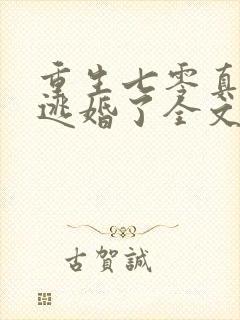 重生七零真
逃婚了全文
古賀誠